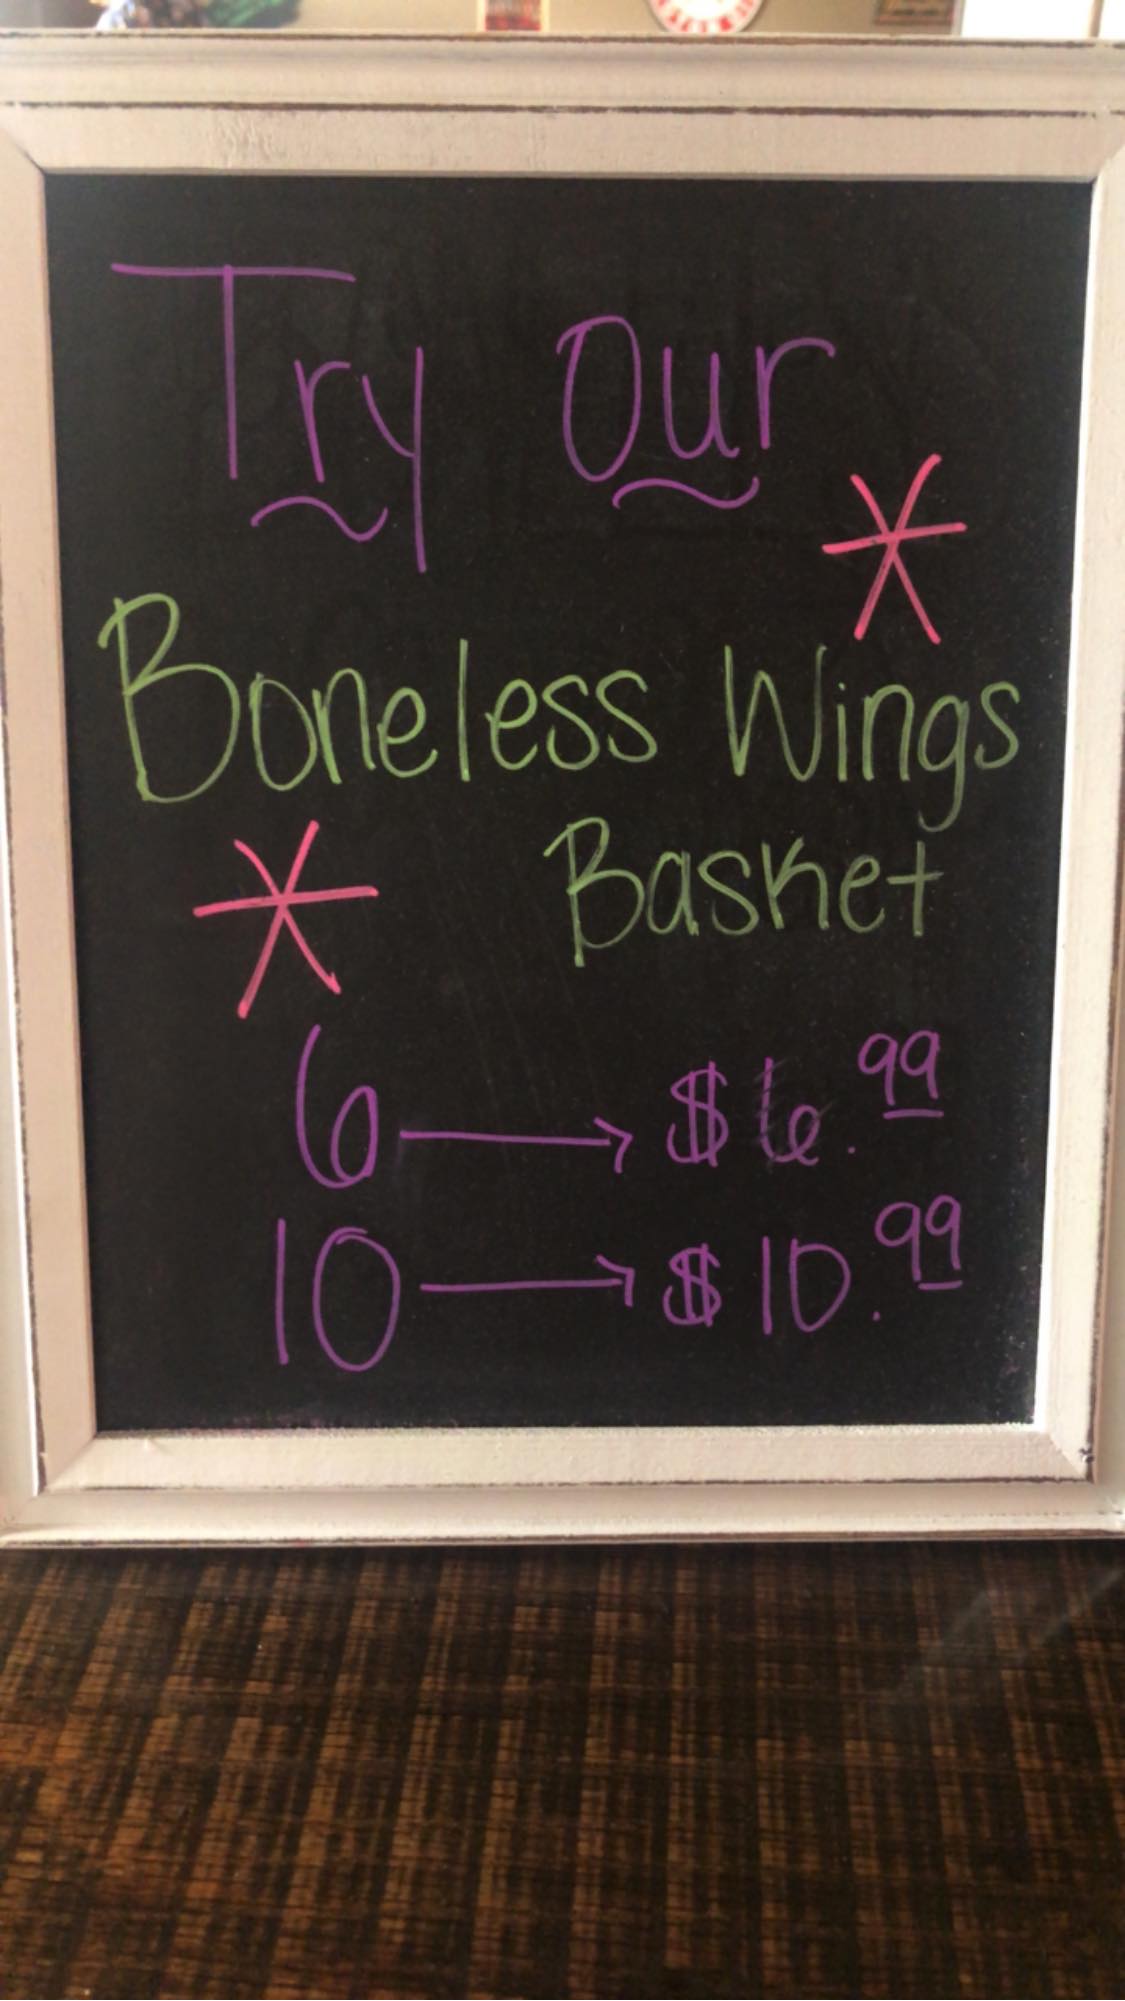 Try Our
Boneless Wings
Basket
6 → $6.99
10 → $10.99